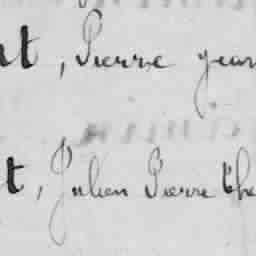 t, Pierre
t, Julien Pierre